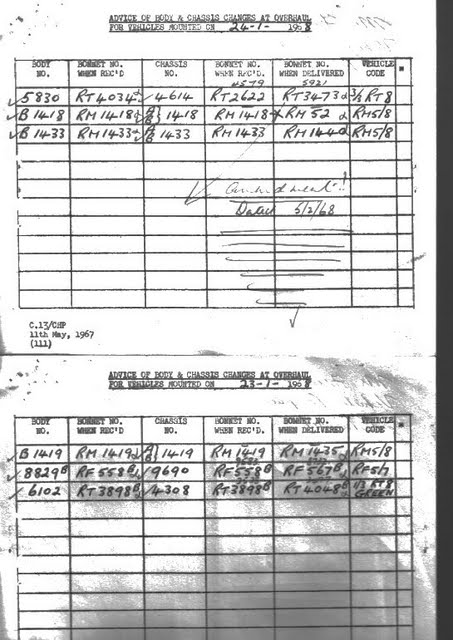 ADVICE OF BODY & CHASSIS CHANGES AT OVERHAUL
FOR VEHICLES MOUNTED ON 24-1- 1968
BODY NO. BONNET NO. WHEN REC'D CHASSIS NO. BONNET NO. WHEN REC'D. BONNET NO. WHEN DELIVERED VEHICLE CODE *
4579 5921
5830 RT4034 4614 RT2622 RT3473 3/3 RT8
B1418 RM1418 A/B 1418 RM1418 RM 52 RM5/8
B1433 RM1433 A/B 1433 RM1433 RM1440 RM5/8
Amendment!!
Dated 5/2/68
C.13/CHP
11th May, 1967
(111)
ADVICE OF BODY & CHASSIS CHANGES AT OVERHAUL
FOR VEHICLES MOUNTED ON 23-1- 1968
BODY NO. BONNET NO. WHEN REC'D CHASSIS NO. BONNET NO. WHEN REC'D. BONNET NO. WHEN DELIVERED VEHICLE CODE *
B1419 RM1419 A/B 1419 RM1419 RM1435 RM5/8
8829B RF558B 9690 RF558B RF567B RF5/7
6102 RT3898B 4308 RT3898B RT4048B 1/3 RT8 GREEN